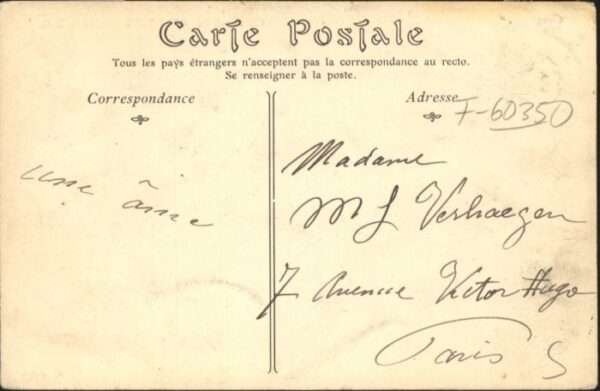 Carte Postale
Tous les pays étrangers n'acceptent pas la correspondance au recto.
Se renseigner à la poste.
Correspondance
Adresse
F-60350
une âme
Madame
M J Verhaegen
7 Avenue Victor Hugo
Paris